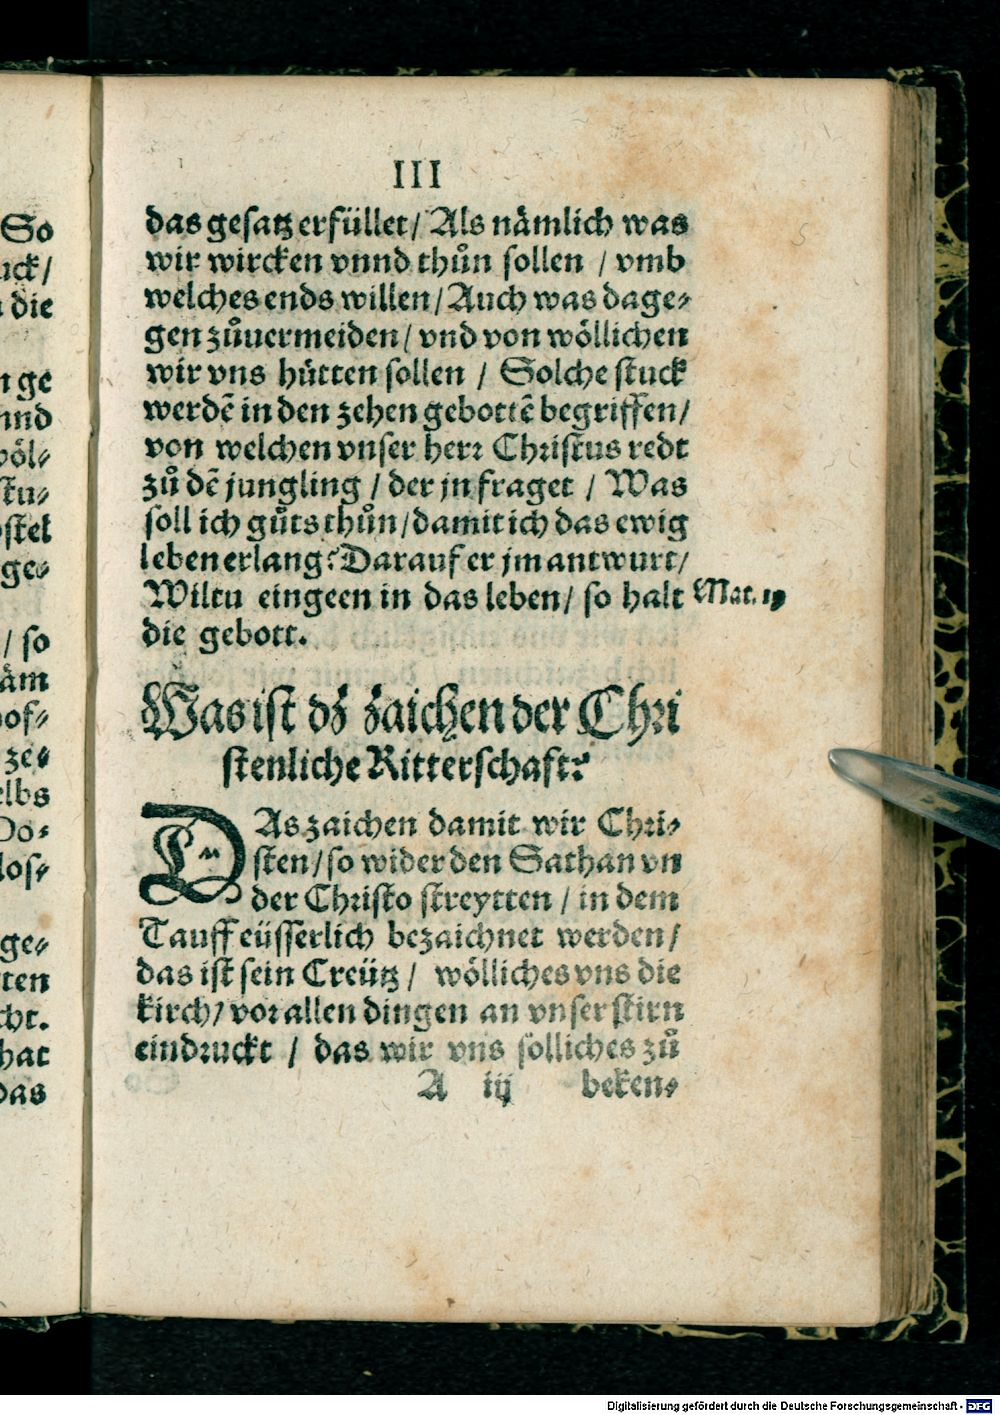 III
das gesatz erfüllet / Als nämlich was
wir wircken vnnd thůn sollen / vmb
welches ends willen / Auch was dage⸗
gen zůuermeiden / vnd von wöllichen
wir vns hütten sollen / Solche stuck
werdē in den zehen gebottē begriffen /
von welchen vnser herr Christus redt
zů dē jungling / der jn fraget / Was
soll ich gůts thůn / damit ich das ewig
leben erlang? Darauf er jm antwurt /
Wiltu eingeen in das leben / so halt
Mat. 19
die gebott.
Was ist dz zaichen der Chri
stenliche Ritterschaft?
DAs zaichen damit wir Chri⸗
sten / so wider den Sathan vn
der Christo streytten / in dem
Tauff eüsserlich bezaichnet werden /
das ist sein Creütz / wölliches vns die
kirch / vor allen dingen an vnser stirn
eindruckt / das wir vns solliches zů
A iij beken⸗
So
uck /
die
n ge
nnd
völ⸗
stu⸗
ostel
ge⸗
/ so
äm
hof⸗
ze⸗
elbs
Do⸗
los⸗
ge⸗
ten
cht.
hat
das
5
Digitalisierung gefördert durch die Deutsche Forschungsgemeinschaft - DFG